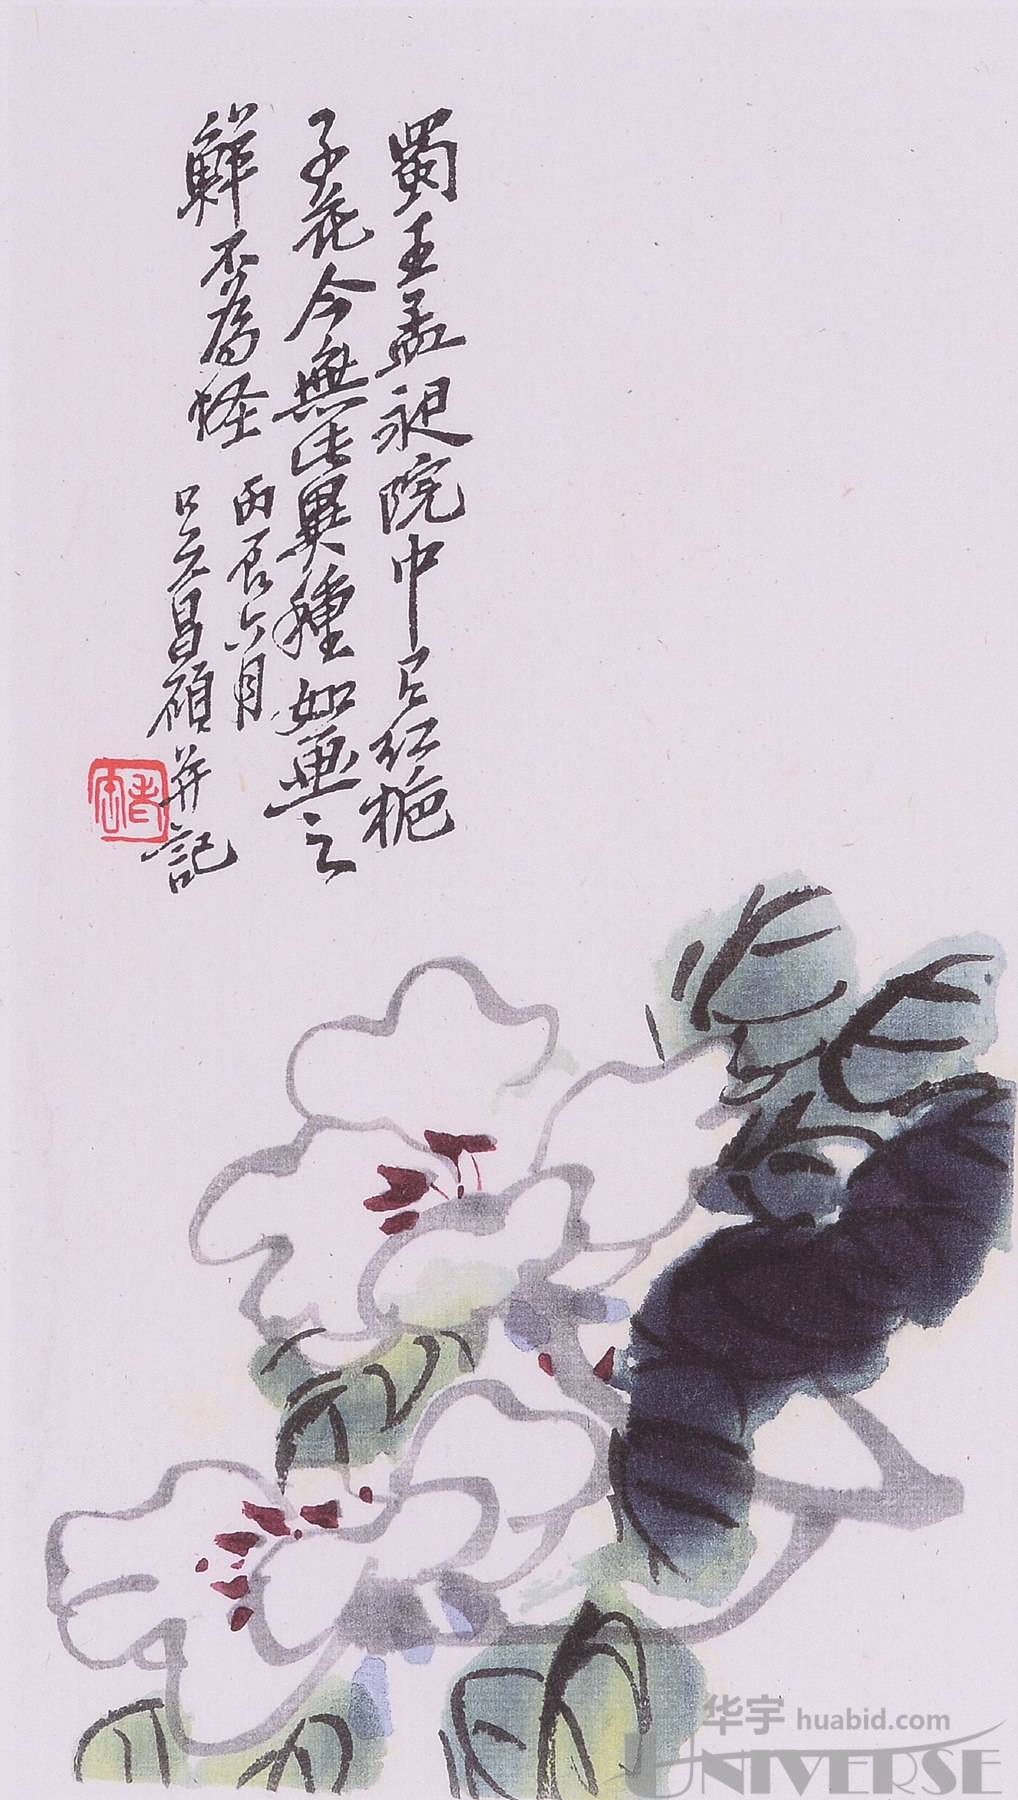 蜀王孟昶院中有红梔
子花今無此異種如画之
鮮不為怪
丙辰六月
吴昌碩并記
老缶
华宇 huabid.com
UNIVERSE